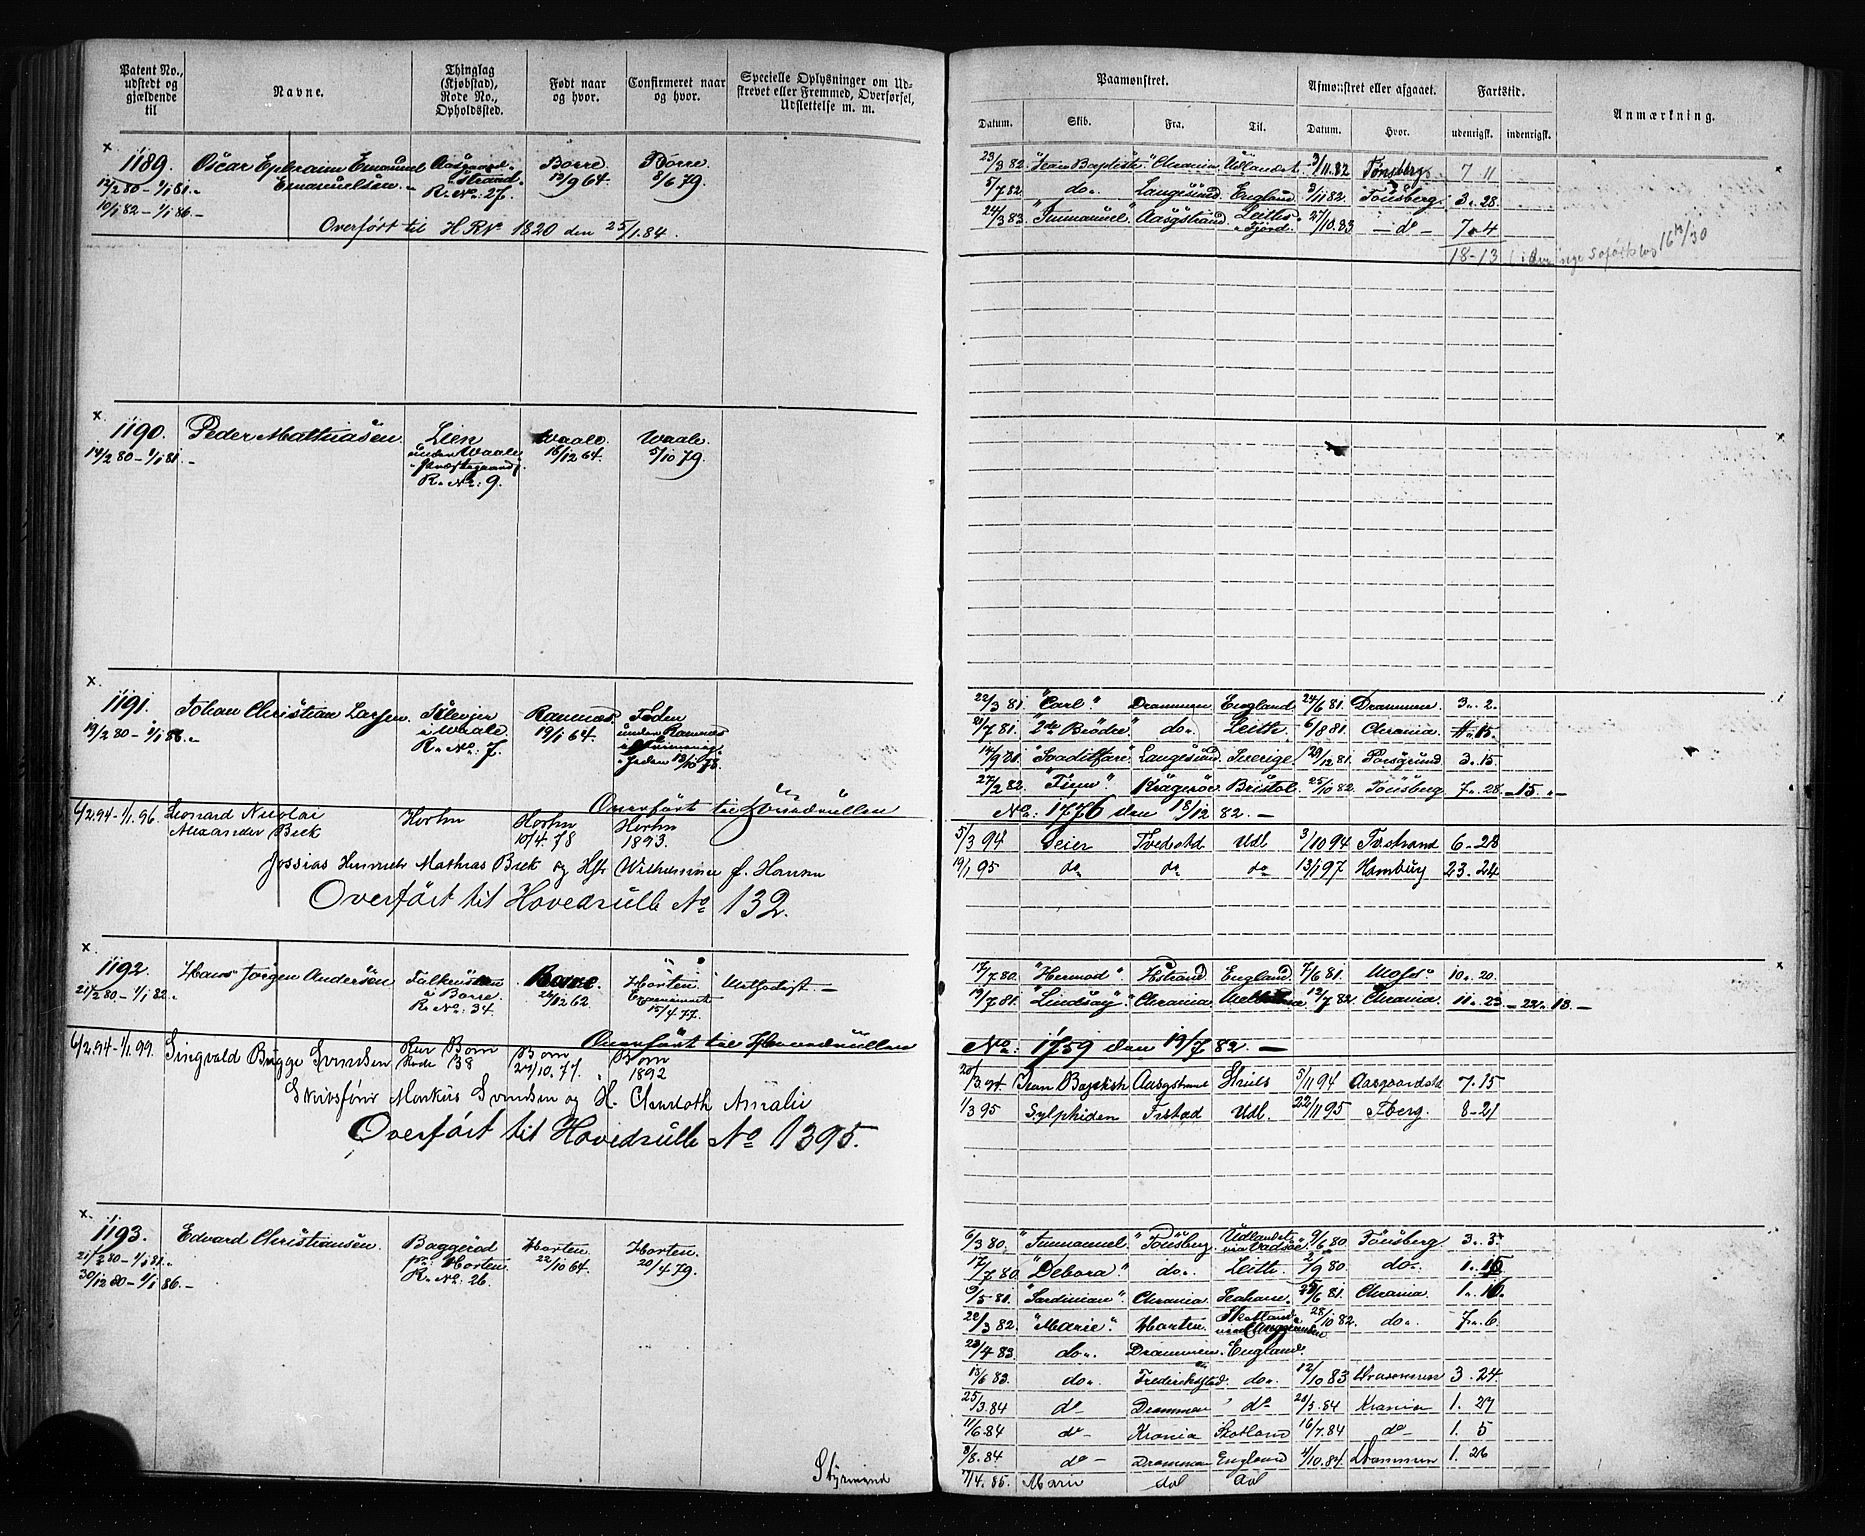 Patent No., udstedt og gjældende til
Navne.
Thinglag (Kjøbstad), Rode No., Opholdssted.
Født naar og hvor.
Confirmeret naar og hvor.
Specielle Oplysninger om Udskrevet eller Fremmed, Overførsel, Udslettelse m. m.
x
1189. Oscar Ephraim Emanuel Aasgaard- Borre Borre
Emanuelsen. strand. 13/9 64. 8/6 79.
14/2 80 - 1/1 81. R. No: 27.
10/1 82 - 1/1 86.
Overført til HRNo 1820 den 25/1 84.
x.
1190. Peder Mathiasen Lien Waale. Waale.
14/2 80 - 1/1 81. under Waale 16/12 64. 5/10 79.
Præstegaard
R. No: 9.
x.
1191. Johan Christian Larsen Klevjer Ramnæs. Foden
19/2 80 - 1/1 86. i Waale 19/1 64. under Ramnæs
R. No: 7.
13/10 78.
Overført til Hovedrullen
6/2.94 - 1/1.96 Leonard Nicolai Horten Horten Horten
Alexander Bick 10/4.78 1893.
Jossias Hinrich Mathias Bick og Hstr Wilhelmine f. Hansen
Overført til Hovedrulle No 132.
x
1192. Hans Jørgen Andersen Falkensten Borre Horten Methodist. -
21/2 80 - 1/1 82. i Borre. 26/12 62. Examineret
R. No: 34. 15/4 77.
Overført til Hovedrullen
6/2.94 - 1/1.99. Singvald Brygge Svendsen Borre Borre
Rode 38 24/10.77. 1892
Skibsfører Markus Svendsen og H. Amalie
Overført til Hovedrulle No 1395.
x.
1193. Edvard Christiansen. Baggerød Horten Horten.
21/2 80 - 1/1 81. pr. Horten. 22/10 64. 20/4 79.
30/12 80 - 1/1 86. R. No: 26.
Styrmand
Paamønstret.
Afmønstret eller afgaaet.
Fartstid.
Anmærkning.
Datum. Skib. Fra. Til. Datum. Hvor. udenrigsk. indenrigsk.
23/3 82. "Jean Baptiste" Chrania Udlandet 3/11.82 Tønsberg 7 11
5/7 82. do. Langesund England 3/11 82 Tønsberg 3. 28.
24/3 83. "Immanuel" Aasgstrand. Leith 27/10.83 - do - 7. 4
Fjord.
18-13
22/3 81. "Carl" Drammen England 24/6 81. Drammen. 3. 2.
21/7 81. "De Brødre" do. Leith 6/8 81. Chrania. 15.
14/9 81. Langesund Sverige 29/12 81. Porsgrund 3. 15.
27/2 82. "Finn" Kragerøe Bristol 25/10 82 Tønsberg 7. 28. - 15. -
No: 1776 den 18/12 82. -
5/3 94 Seier Tvedestd Udl 3/10 94 Tvstrand 6 - 28
19/1 95 do do do 13/1 97 Hamburg 23. 24
17/7 80. "Hermod" Hstrand England 7/6 81. Moss. 10. 20.
19/7 81. "Lindsay". Chrania 12/7 82. Chrania. 11. 23. - 22. 13. -
No: 1759 den 19/7 82. -
20/3 94. Jean Baptiste Aasgstrand 5/11 94 Aasgaardstd 7. 15
1/3 95 Sylphiden Frstad Udl. 22/11 95 Tberg. 8 - 21
6/3 80. "Immanuel." Tønsberg Udlandet 9/6 80 Tønsberg 3. 3.
via Vadsøe
17/7 80. "Debora." do. Leith 2/9 80 do. 1. 15
9/5 81. "Sardinian". Chrania. Seaham. 25/6 81. Chrania. 1. 16.
22/3 82. "Marie". Horten. Skotland 28/10 82. do. 7. 6.
23/4 83. do. Drammen. England.
18/6 83. do. Frederikstad. do. 12/10 83 Drammen 3. 24.
25/3.84 do - Drammen do - 21/5.84 Krania 1. 27
11/6.84 do - Krania Skotland 16/7.84 do - 1. 5
9/8.84 do - Drammen England 4/10.84 Drammen 1. 26
7/4.85. Marie dol dol